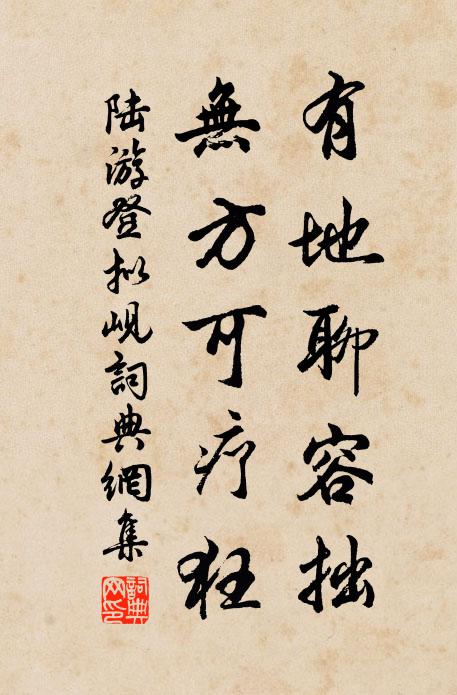 有地聊容拙
無方可疗狂
陆游登拟岘詞典網集
詞典网印